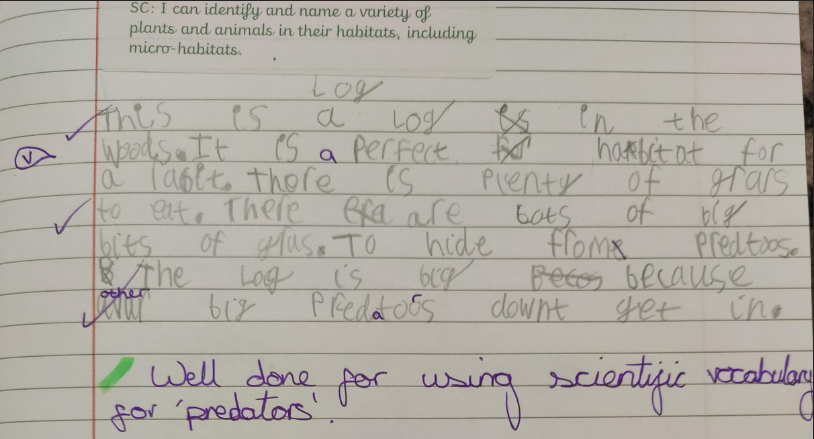 SC: I can identify and name a variety of
plants and animals in their habitats, including
micro-habitats.
Log
This is a Log in the
Woods. It is a perfect habitat for
a rabit. there is Plenty of grars
to eat. There are bots of big
bits of grus. To hide from Predtoos.
The Log is big because
other big Predatoos downt get in.
V
Well done for using scientific vocabulary
for 'predators'.